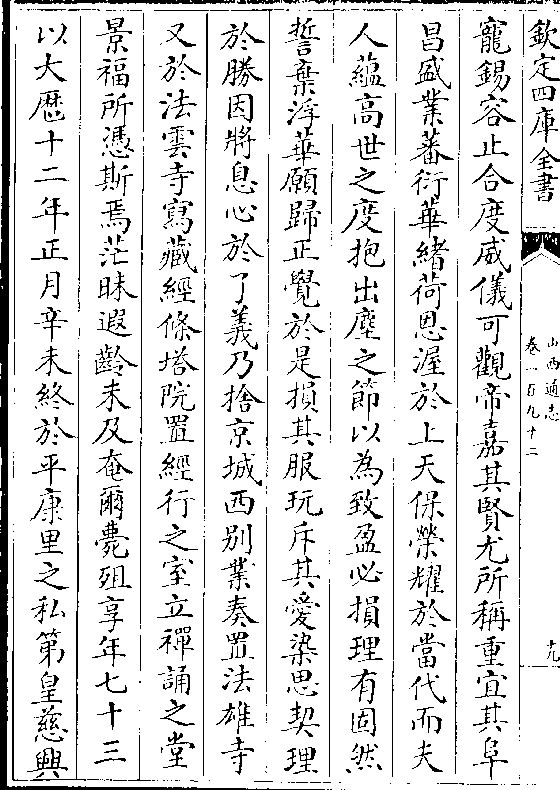 欽定四庫全書
山西通志
卷一百九十二
九
寵錫容止合度威儀可觀帝嘉其賢尤所稱重宜其阜
昌盛業蕃衍華緒荷恩渥於上天保榮耀於當代而夫
人蘊高世之度抱出塵之節以為致盈必損理有固然
誓棄浮華願歸正覺於是損其服玩斥其愛染思契理
於勝因將息心於了義乃捨京城西別業奏置法雄寺
又於法雲寺寫藏經條塔院置經行之室立禪誦之堂
景福所憑斯焉茫昧遐齡未及奄爾薨殂享年七十三
以大厯十二年正月辛未終於平康里之私第皇慈興